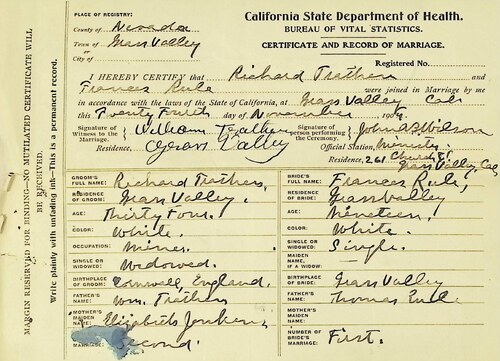 California State Department of Health.
BUREAU OF VITAL STATISTICS.
CERTIFICATE AND RECORD OF MARRIAGE.
PLACE OF REGISTRY:
County of Nevada
Town of Grass Valley
or
City of
Registered No.
I HEREBY CERTIFY that Richard Trathen and
Frances Rule were joined in Marriage by me
in accordance with the laws of the State of California, at Grass Valley Cal
this Twenty Fourth day of November 190
Signature of Witness to the Marriage, William Trathen
Residence, Grass Valley
Signature of person performing the Ceremony, John B Wilson
Official Station, Minister
Residence, 261 Church St
Grass Valley, Cal
GROOM'S FULL NAME: Richard Trathen,
RESIDENCE OF GROOM: Grass Valley.
AGE: Thirty Four.
COLOR: White.
OCCUPATION: Miner.
SINGLE OR WIDOWED: Widowed.
BIRTHPLACE OF GROOM: Cornwall, England.
FATHER'S NAME: Wm. Trathen
MOTHER'S MAIDEN NAME: Elizabeth
MARRIAGE: Second.
BRIDE'S FULL NAME: Frances Rule,
RESIDENCE OF BRIDE: Grass Valley
AGE: Nineteen.
COLOR: White.
SINGLE OR WIDOWED: Single.
MAIDEN NAME, IF A WIDOW:
BIRTHPLACE OF BRIDE: Grass Valley
FATHER'S NAME: Thomas Rule
MOTHER'S MAIDEN NAME:
NUMBER OF BRIDE'S MARRIAGE: First.
MARGIN RESERVED FOR BINDING—NO MUTILATED CERTIFICATE WILL
BE RECEIVED.
Write plainly with unfading ink—This is a permanent record.